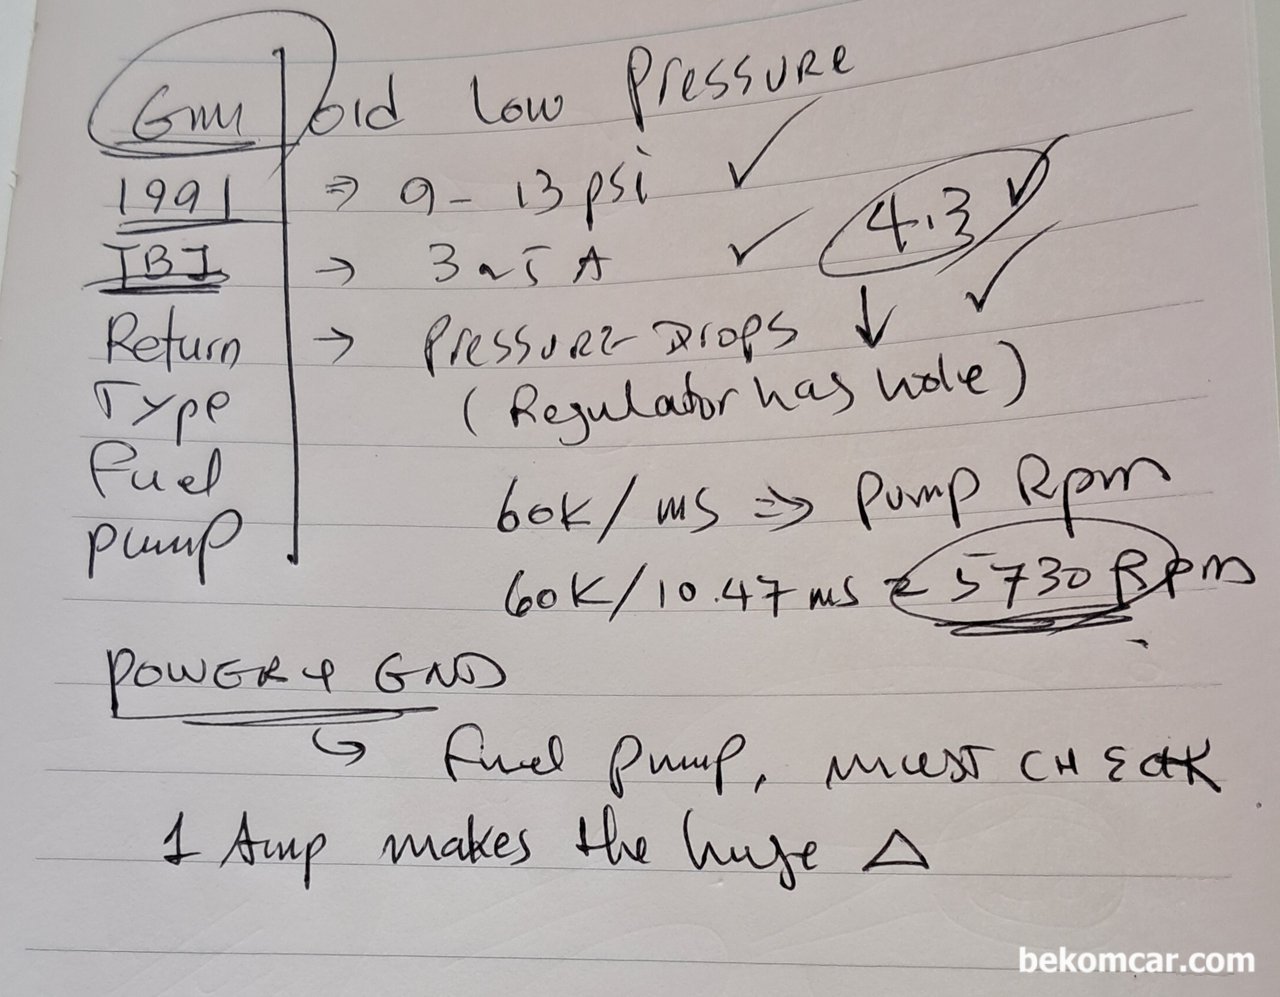 GM old Low Pressure
1991 ⇒ 9-13 psi ✓
TBI → 3~5 A ✓ 4.3 ✓
Return → Pressure Drops ↓ ✓
Type (Regulator has hole)
Fuel
60K/ms ⇒ Pump Rpm
pump
60K/10.47 ms = 5730 Rpm
POWER + GND
↳ fuel pump, must CHECK
1 Amp makes the huge △
bekomcar.com